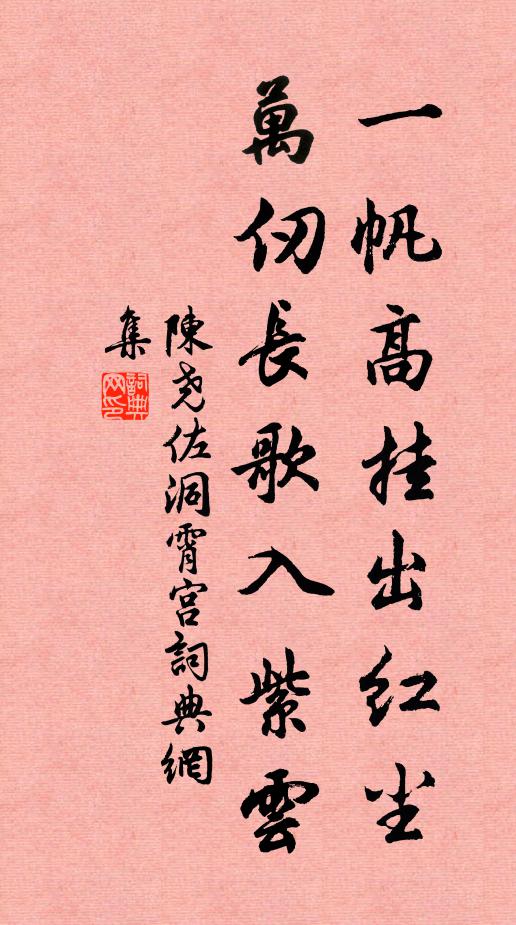 一帆高挂出红尘
萬仞長歌入紫雲
陳尧佐洞霄宫詞典網
集
詞典网印